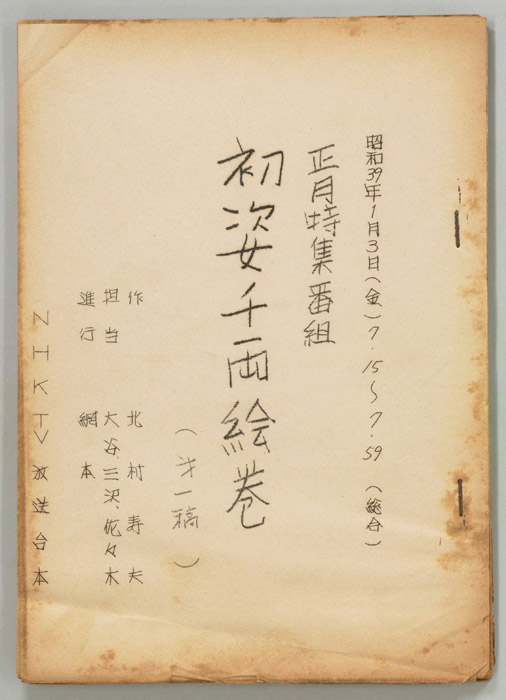 昭和39年1月3日(金)7.15〜7.59(総合)
正月特集番組
初姿千両絵巻
(第一稿)
作 北村寿夫
担当 大谷三沢、佐々木
進行 網本
NHKTV放送台本